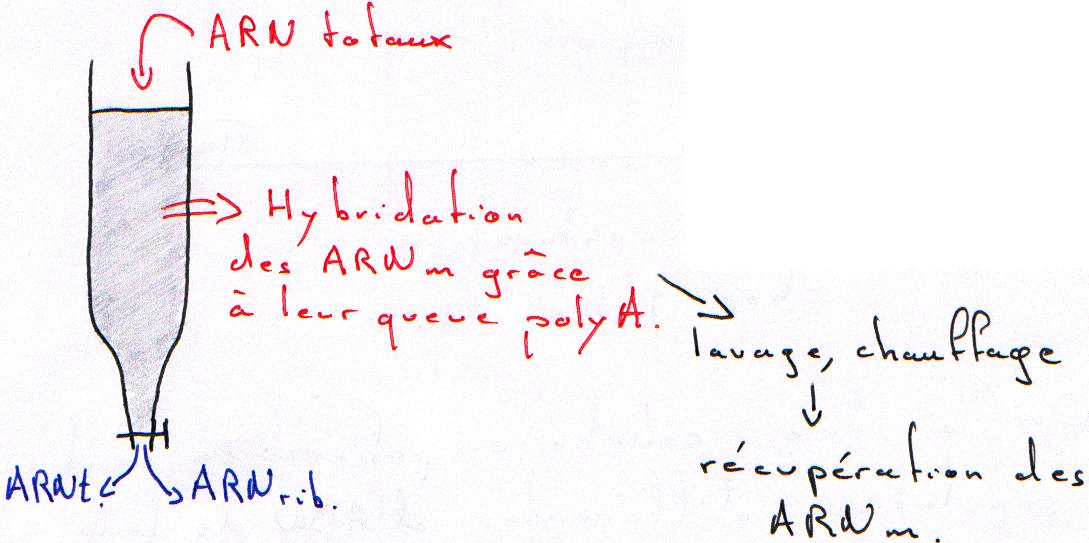 ARN totaux
Hybridation
des ARNm grâce
à leur queue polyA.
lavage, chauffage
récupération des
ARNm.
ARNt. ARNrib.